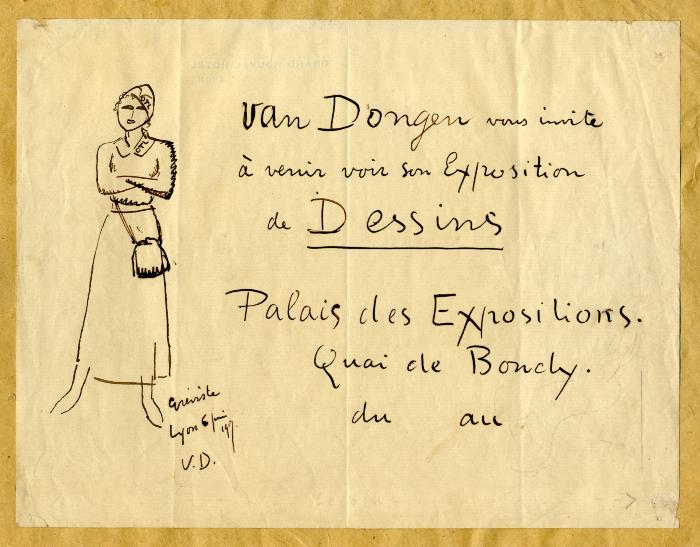 GRAND NOUVEL HÔTEL
LYON
Van Dongen vous invite
à venir voir son Exposition
de Dessins
Palais des Expositions.
Quai de Bondy.
du au
Gréviste
Lyon 6 juin
V.D.